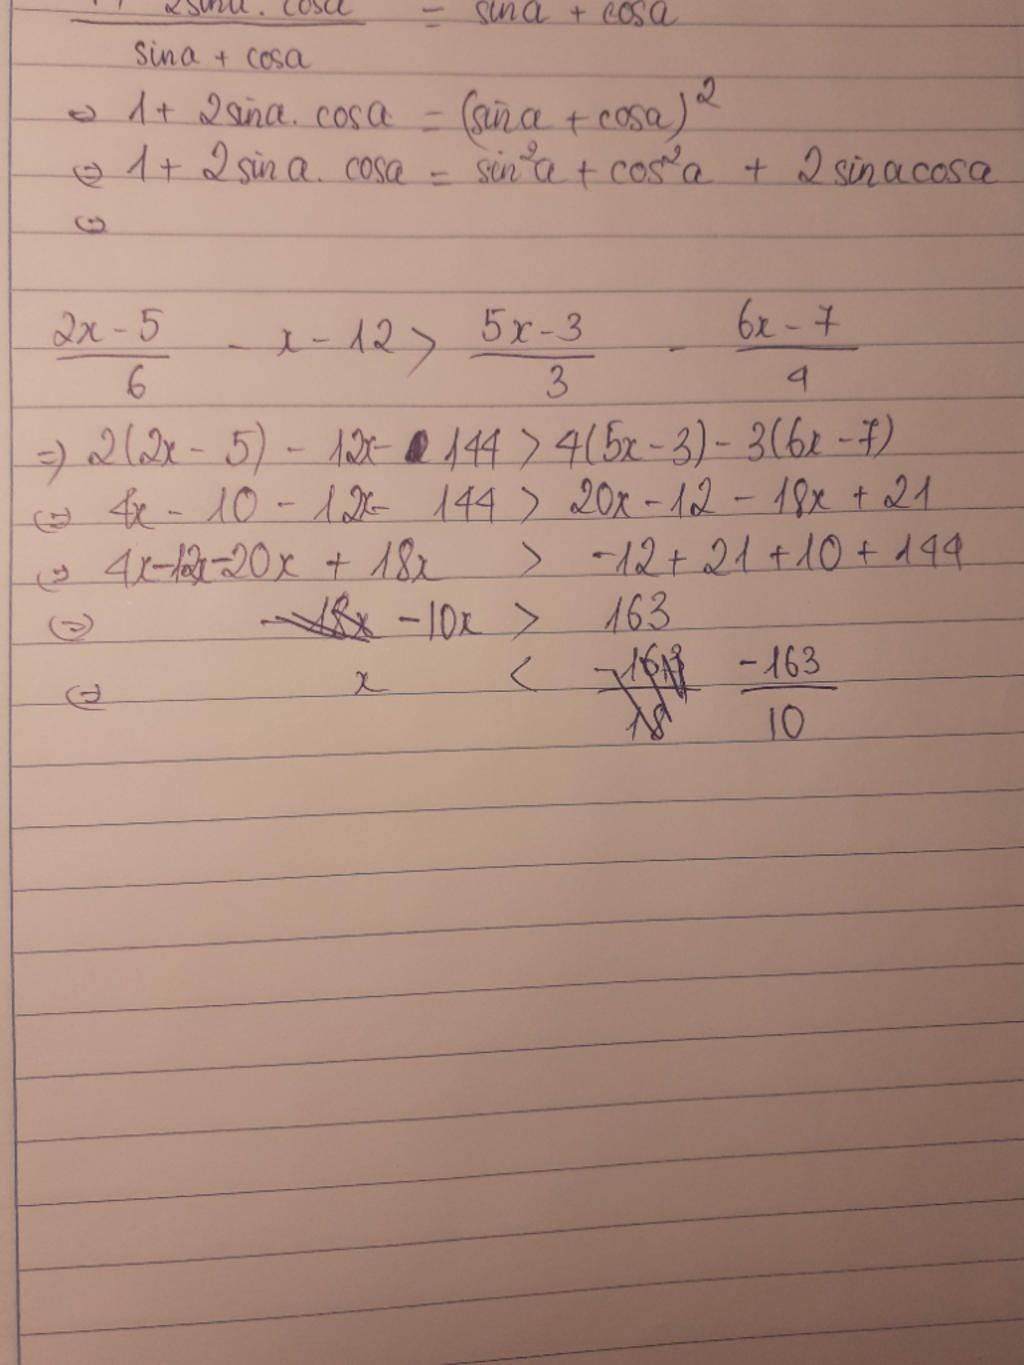 2sina. cosa = sina + cosa
sina + cosa
⇔ 1 + 2sina. cosa = (sina + cosa)²
⇔ 1 + 2sina. cosa = sin²a + cos²a + 2sinacosa
⇔
2x - 5 / 6 - x - 12 > 5x - 3 / 3 - 6x - 7 / 4
⇒ 2(2x - 5) - 12x - 144 > 4(5x - 3) - 3(6x - 7)
⇔ 4x - 10 - 12x - 144 > 20x - 12 - 18x + 21
⇔ 4x - 12x - 20x + 18x > -12 + 21 + 10 + 144
⇔ -18x -10x > 163
⇔ x < -163 / 10